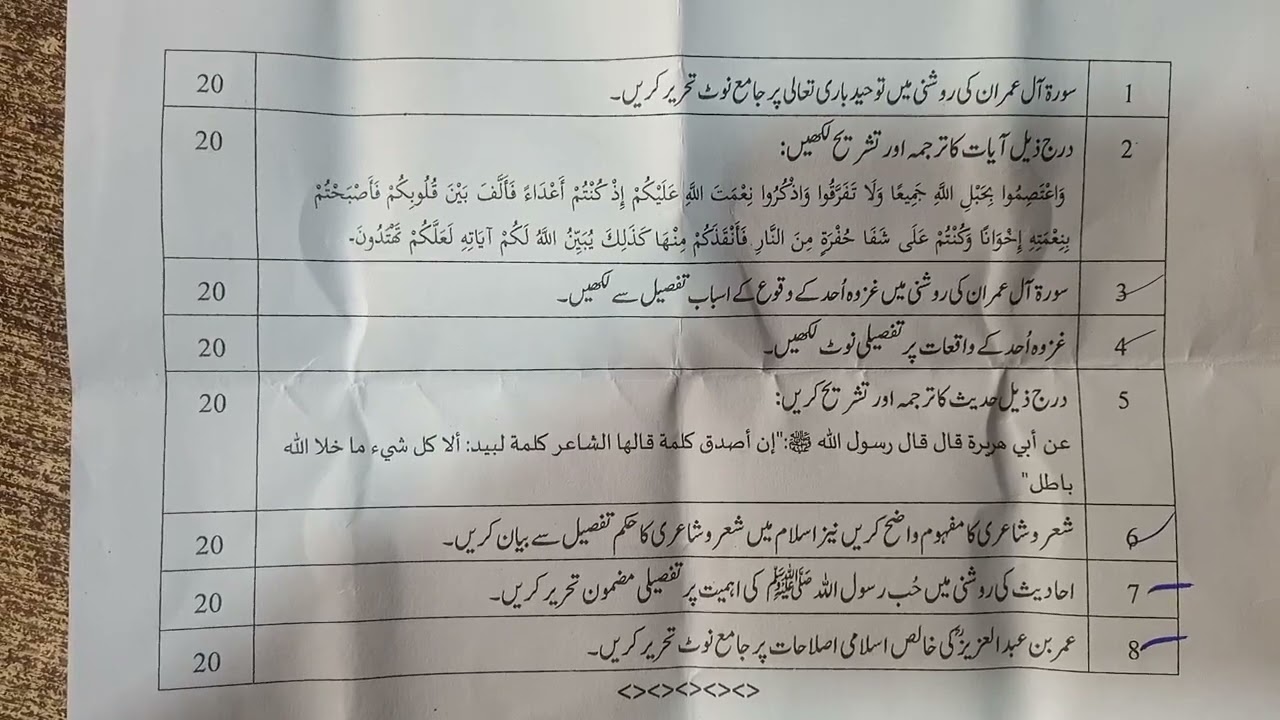 1 سورۃ آل عمران کی روشنی میں توحید باری تعالی پر جامع نوٹ تحریر کریں۔ 20
2 درج ذیل آیات کا ترجمہ اور تشریح لکھیں: 20
وَاعْتَصِمُوا بِحَبْلِ اللَّهِ جَمِيعًا وَلَا تَفَرَّقُوا وَاذْكُرُوا نِعْمَتَ اللَّهِ عَلَيْكُمْ إِذْ كُنْتُمْ أَعْدَاءً فَأَلَّفَ بَيْنَ قُلُوبِكُمْ فَأَصْبَحْتُمْ
بِنِعْمَتِهِ إِخْوَانًا وَكُنْتُمْ عَلَى شَفَا حُفْرَةٍ مِنَ النَّارِ فَأَنْقَذَكُمْ مِنْهَا كَذَلِكَ يُبَيِّنُ اللَّهُ لَكُمْ آيَاتِهِ لَعَلَّكُمْ تَهْتَدُونَ۔
3 سورۃ آل عمران کی روشنی میں غزوہ اُحد کے وقوع کے اسباب تفصیل سے لکھیں۔ 20
4 غزوہ اُحد کے واقعات پر تفصیلی نوٹ لکھیں۔ 20
5 درج ذیل حدیث کا ترجمہ اور تشریح کریں: 20
عن أبي هريرة قال قال رسول الله ﷺ:"إن أصدق كلمة قالها الشاعر كلمة لبيد: ألا كل شيء ما خلا الله
باطل"
6 شعر و شاعری کا مفہوم واضح کریں نیز اسلام میں شعر و شاعری کا حکم تفصیل سے بیان کریں۔ 20
7 احادیث کی روشنی میں حُب رسول اللہ ﷺ کی اہمیت پر تفصیلی مضمون تحریر کریں۔ 20
8 عمر بن عبد العزیزؒ کی خالص اسلامی اصلاحات پر جامع نوٹ تحریر کریں۔ 20
<><><><><>